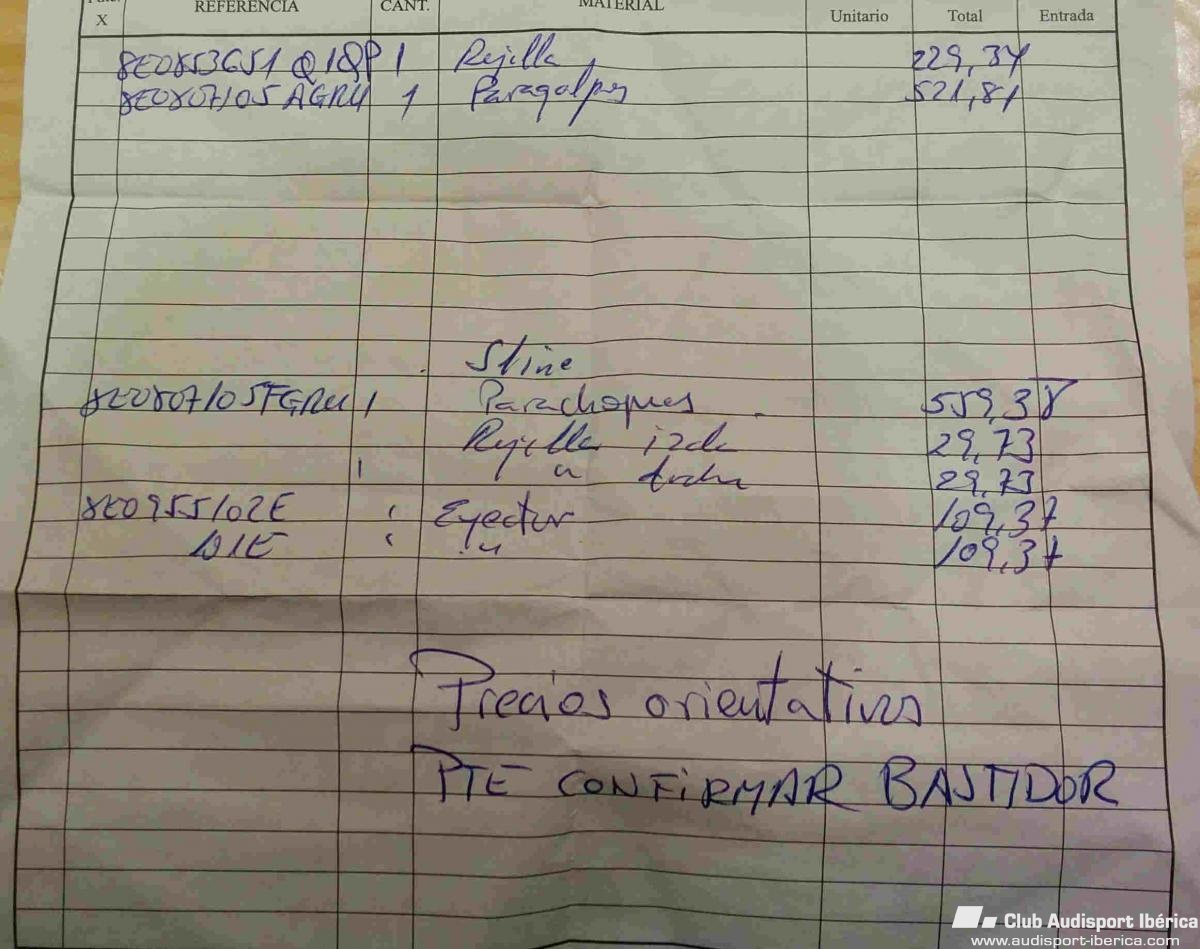 X REFERENCIA CANT. MATERIAL Unitario Total Entrada
8E0853651 Q 1QP 1 Rejilla 229,37
8E0807105 AGRU 1 Paragolpes 521,81
Sline
8E0807105FGRU 1 Parachoques 559,38
Rejilla izda 29,73
1 " drcha 29,73
8E0955102E Eyector 109,37
101E " 109,37
Precios orientativos
PTE CONFIRMAR BASTIDOR
Club Audisport Ibérica
www.audisport-iberica.com